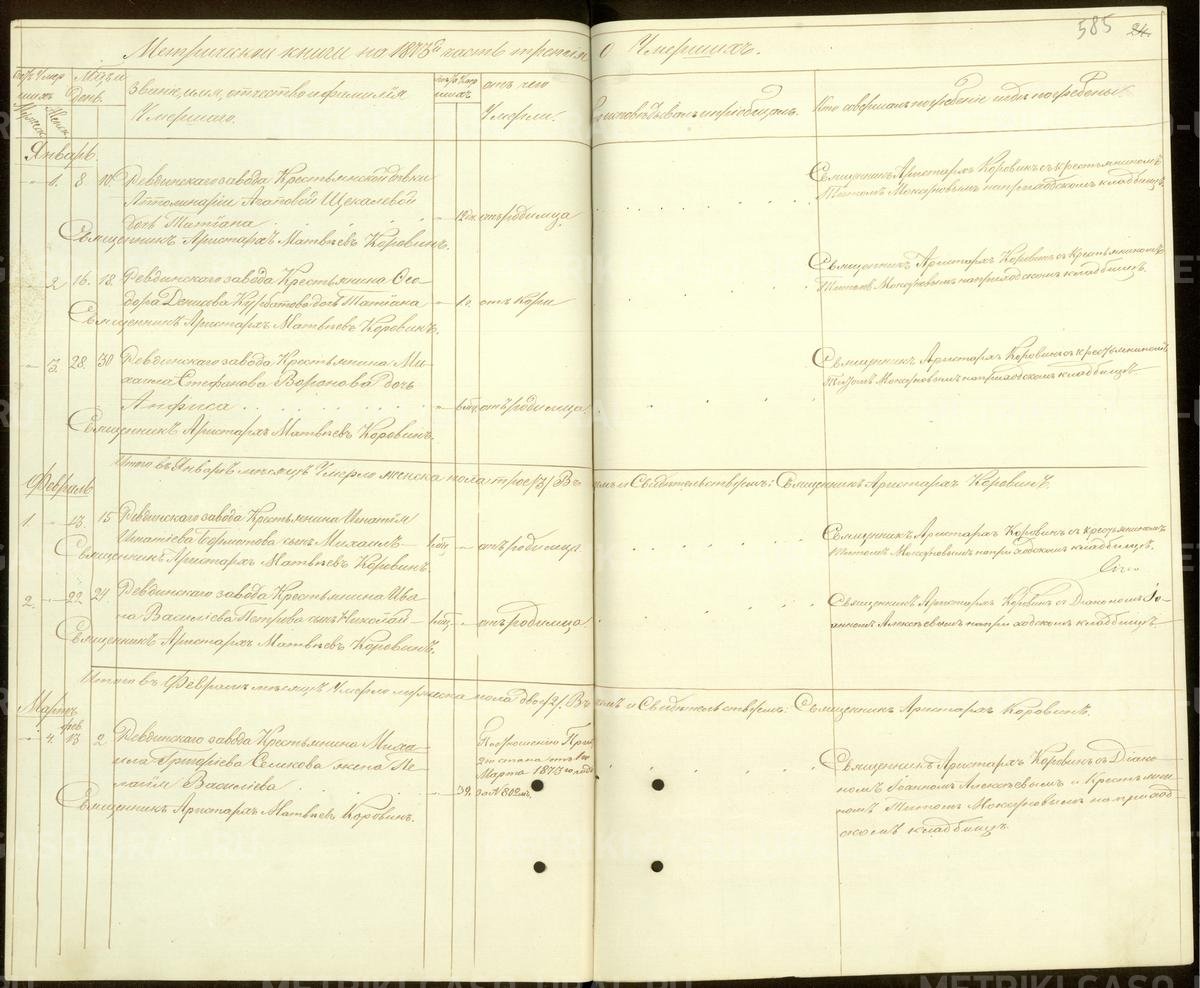 585
24.
Метрической книги на 1873й часть третія О Умершихъ.
Звание, имя, отчество и фамилія
Умершаго.
отъ чего
Умерли.
Кто исповѣдывалъ и пріобщалъ.
Кто совершалъ погребеніе и гдѣ погребены
Январь.
1. 8 10 Ревдинскаго завода Крестьянской дѣвки
Агаповой Щекалевой
дочь Татіана отъ родимца
Священникъ Аристархъ Матвѣевъ Коровинъ.
Священникъ Аристархъ Коровинъ съ крестьяниномъ
Титомъ Мокѣровымъ на приходскомъ кладбищѣ.
2 16. 18. Ревдинскаго завода Крестьянина Ѳео-
дора Денисова Курбатова дочь Татіана 1г. отъ кори
Священникъ Аристархъ Матвѣевъ Коровинъ.
Священникъ Аристархъ Коровинъ съ Крестьяниномъ
Титомъ Мокѣровымъ на приходскомъ кладбищѣ.
3. 28. 30 Ревдинскаго завода Крестьянина Ми-
хаила Стефанова Воронова дочь
Анфиса отъ родимца
Священникъ Аристархъ Матвѣевъ Коровинъ.
Священникъ Аристархъ Коровинъ съ крестьяниномъ
Титомъ Мокѣровымъ на приходскомъ кладбищѣ.
Итого въ Январѣ мѣсяцѣ Умерло женска пола трое /3/ Въ чемъ и Свидѣтельствуемъ: Священникъ Аристархъ Коровинъ.
Февраль
1. 13. 15 Ревдинскаго завода Крестьянина Игнатія
Игнатіева сынъ Михаилъ отъ родимца
Священникъ Аристархъ Матвѣевъ Коровинъ.
Священникъ Аристархъ Коровинъ съ крестьяниномъ
Титомъ Мокѣровымъ на приходскомъ кладбищѣ.
2. 22 24 Ревдинскаго завода Крестьянина Ива-
на Василіева Петрова сынъ Николай отъ родимца
Священникъ Аристархъ Матвѣевъ Коровинъ.
Священникъ Аристархъ Коровинъ съ Діакономъ Іо-
анномъ Алексѣевымъ на приходскомъ кладбищѣ
Итого въ Февралѣ мѣсяцѣ Умерло мужеска пола двое /2/. Въ чемъ и Свидѣтельствуемъ: Священникъ Аристархъ Коровинъ.
Мартъ
фев.
4. 13 2 Ревдинскаго завода Крестьянина Миха-
ила Григоріева Селикова жена Пе-
лагія Василіева 39.
Священникъ Аристархъ Матвѣевъ Коровинъ.
По отношенію
2го стана отъ 1го
Марта 1873 года
за № 802м.
Священникъ Аристархъ Коровинъ съ Діако-
номъ Іоанномъ Алексѣевымъ и Крестьяни-
номъ Титомъ Мокѣровымъ на приход-
скомъ кладбищѣ.
METRIKI.GASO-URAL.RU